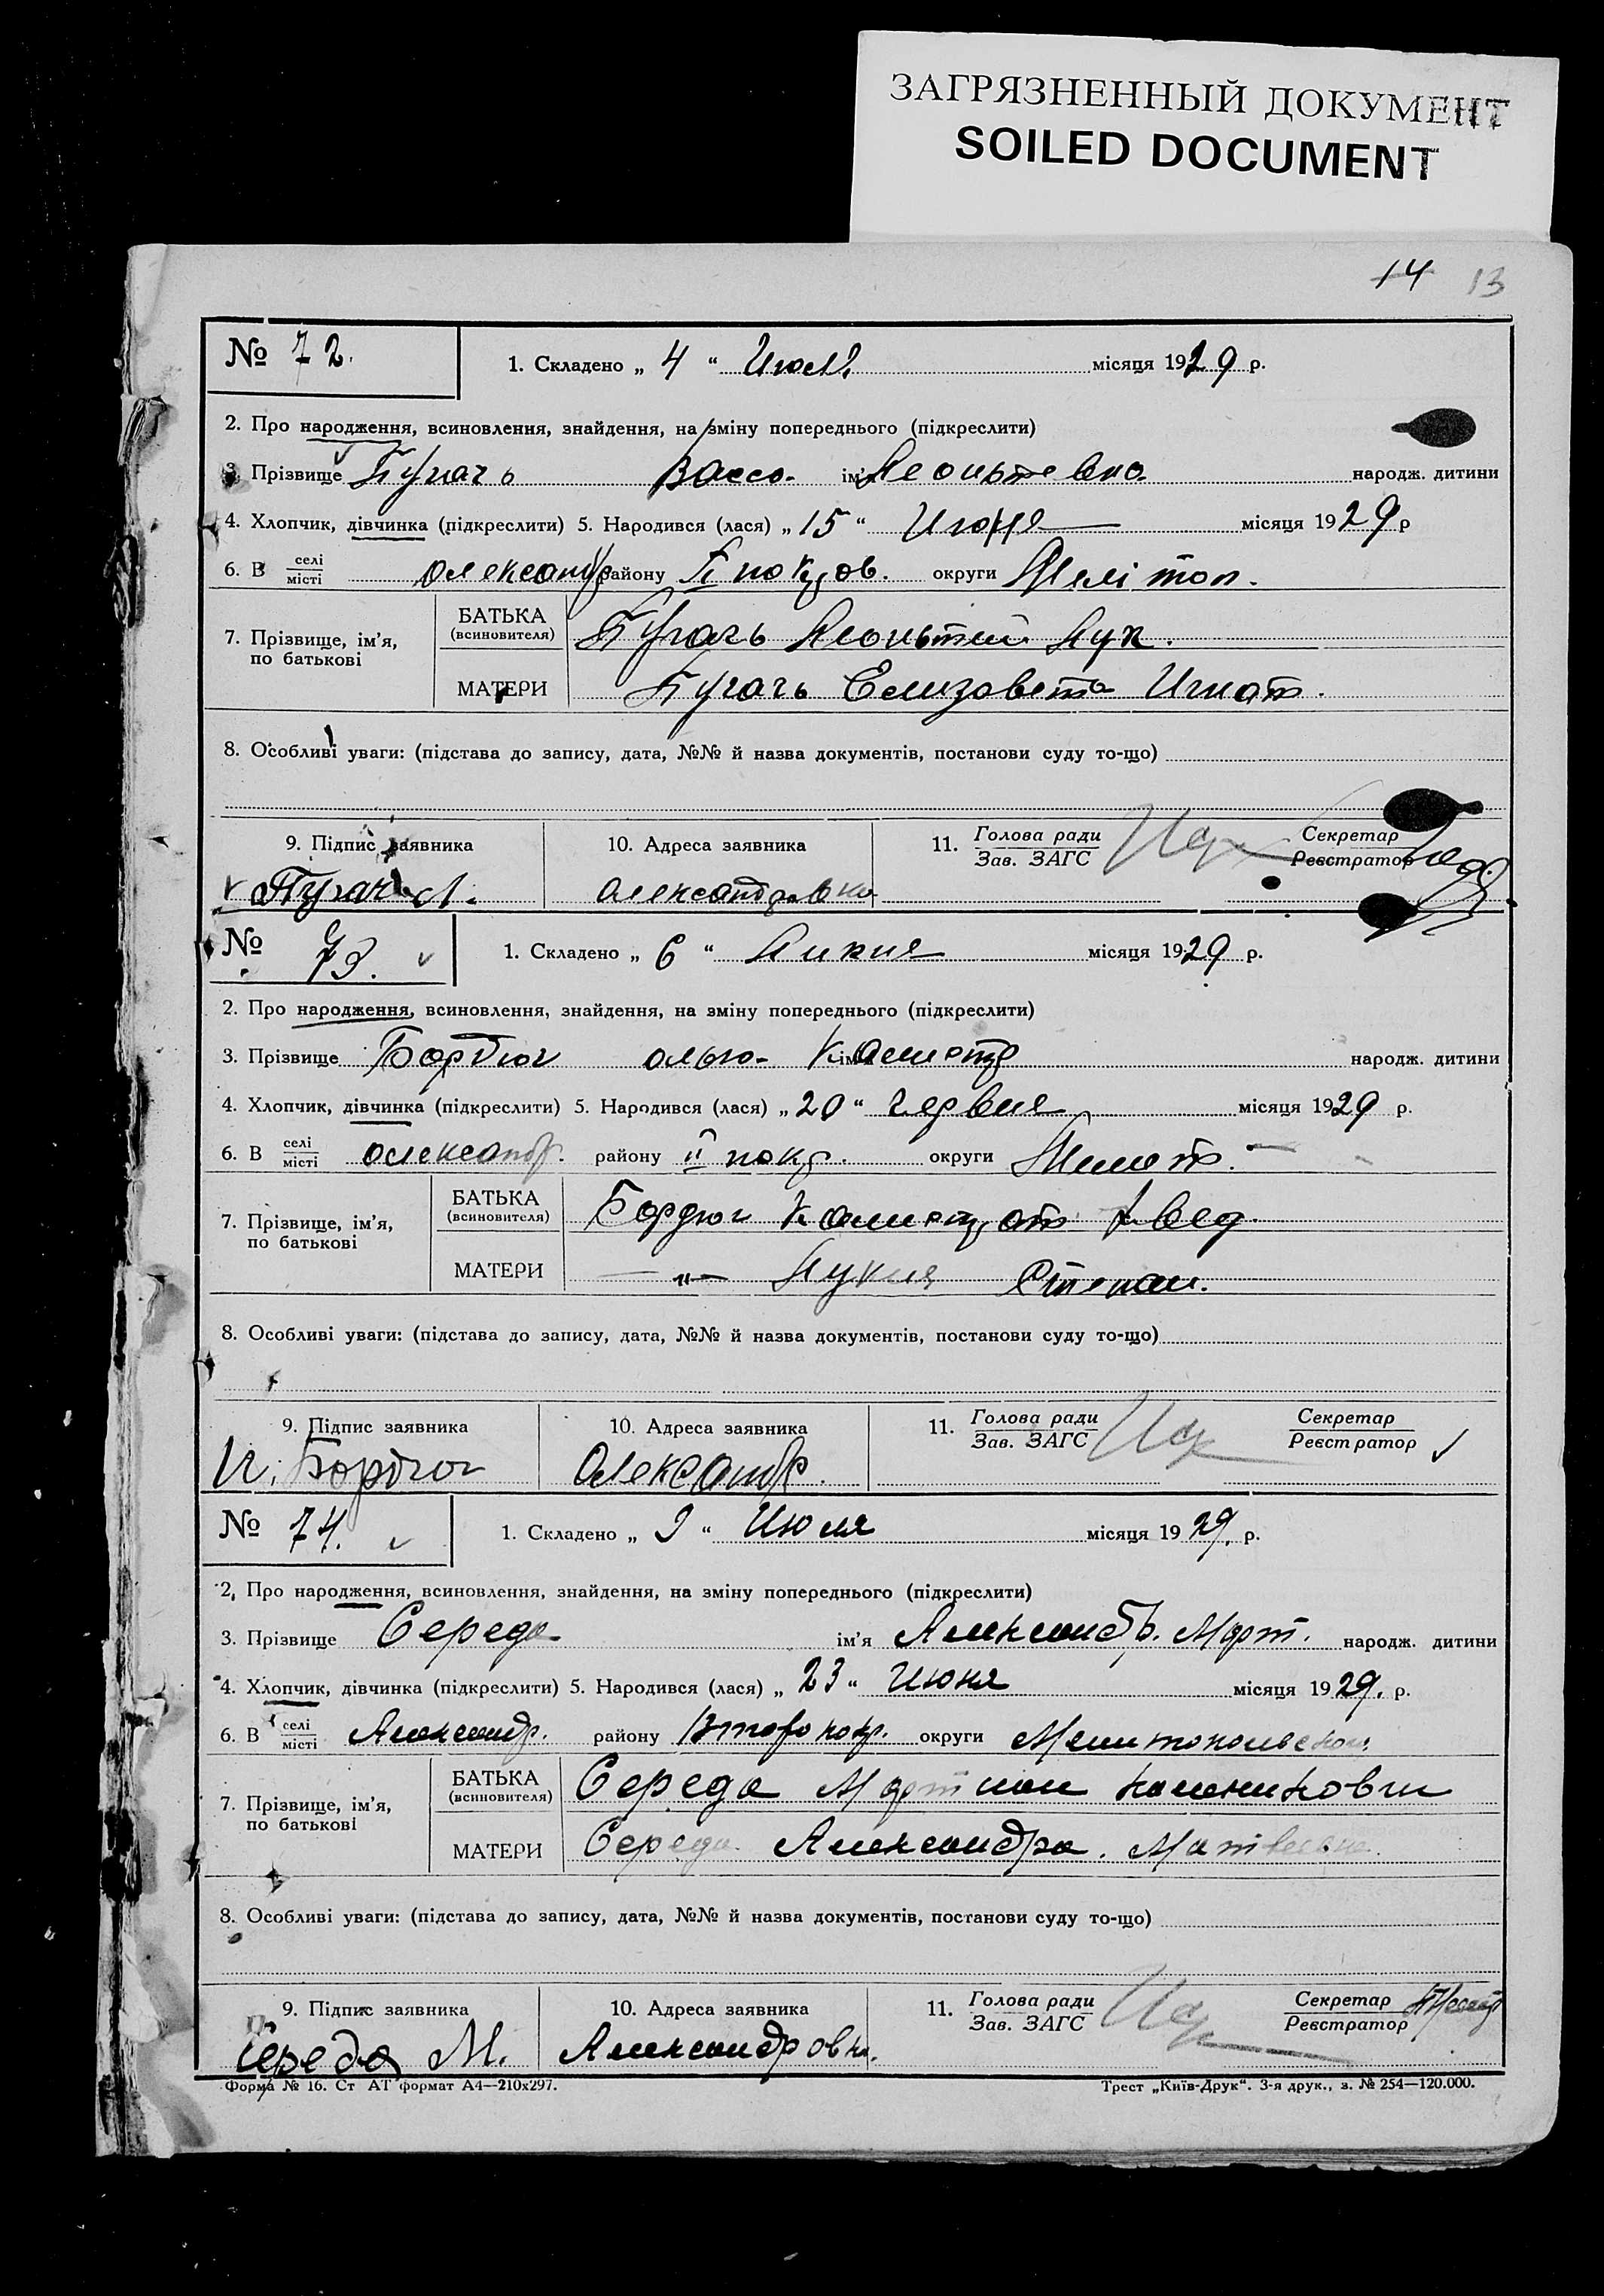 ЗАГРЯЗНЕННЫЙ ДОКУМЕНТ
SOILED DOCUMENT
14 13
№ 72. 1. Складено „ 4 “ Июля місяця 1929 р.
2. Про народження, всиновлення, знайдення, на зміну попереднього (підкреслити)
3. Прізвище Пугачь Васса ім'я Леонтевна народж. дитини
4. Хлопчик, дівчинка (підкреслити) 5. Народився (лася) „ 15 “ Июня місяця 1929 р
6. В селі/місті Олександр району II покров. округи Мелітоп.
7. Прізвище, ім'я, по батькові БАТЬКА (всиновителя) Пугачь Леонтий Лук.
МАТЕРИ Пугачь Елизовета Игнат.
8. Особливі уваги: (підстава до запису, дата, №№ й назва документів, постанови суду то-що)
9. Підпис заявника 10. Адреса заявника 11. Голова ради/Зав. ЗАГС Секретар/Реєстратор
Пугач Л. Олександровка
№ 73. 1. Складено „ 6 “ Липня місяця 1929 р.
2. Про народження, всиновлення, знайдення, на зміну попереднього (підкреслити)
3. Прізвище Бордюг ім'я народж. дитини
4. Хлопчик, дівчинка (підкреслити) 5. Народився (лася) „ 20 “ Червня місяця 1929 р.
6. В селі/місті Олександр. району II покр. округи Мелит.
7. Прізвище, ім'я, по батькові БАТЬКА (всиновителя) Бордюг
МАТЕРИ —„— Степан.
8. Особливі уваги: (підстава до запису, дата, №№ й назва документів, постанови суду то-що)
9. Підпис заявника 10. Адреса заявника 11. Голова ради/Зав. ЗАГС Секретар/Реєстратор
Бордюг Олександр.
№ 74. 1. Складено „ 9 “ Июля місяця 1929. р.
2. Про народження, всиновлення, знайдення, на зміну попереднього (підкреслити)
3. Прізвище Середа ім'я Александр. Март. народж. дитини
4. Хлопчик, дівчинка (підкреслити) 5. Народився (лася) „ 23 “ Июня місяця 1929. р.
6. В селі/місті Александр. району Второпокр. округи Мелитопольской
7. Прізвище, ім'я, по батькові БАТЬКА (всиновителя) Середа
МАТЕРИ Середа Александра. Матвеевна
8. Особливі уваги: (підстава до запису, дата, №№ й назва документів, постанови суду то-що)
9. Підпис заявника 10. Адреса заявника 11. Голова ради/Зав. ЗАГС Секретар/Реєстратор
Середа М. Александровк.
Форма № 16. Ст АТ формат А4—210х297. Трест „Київ-Друк“. 3-я друк., з. № 254—120.000.